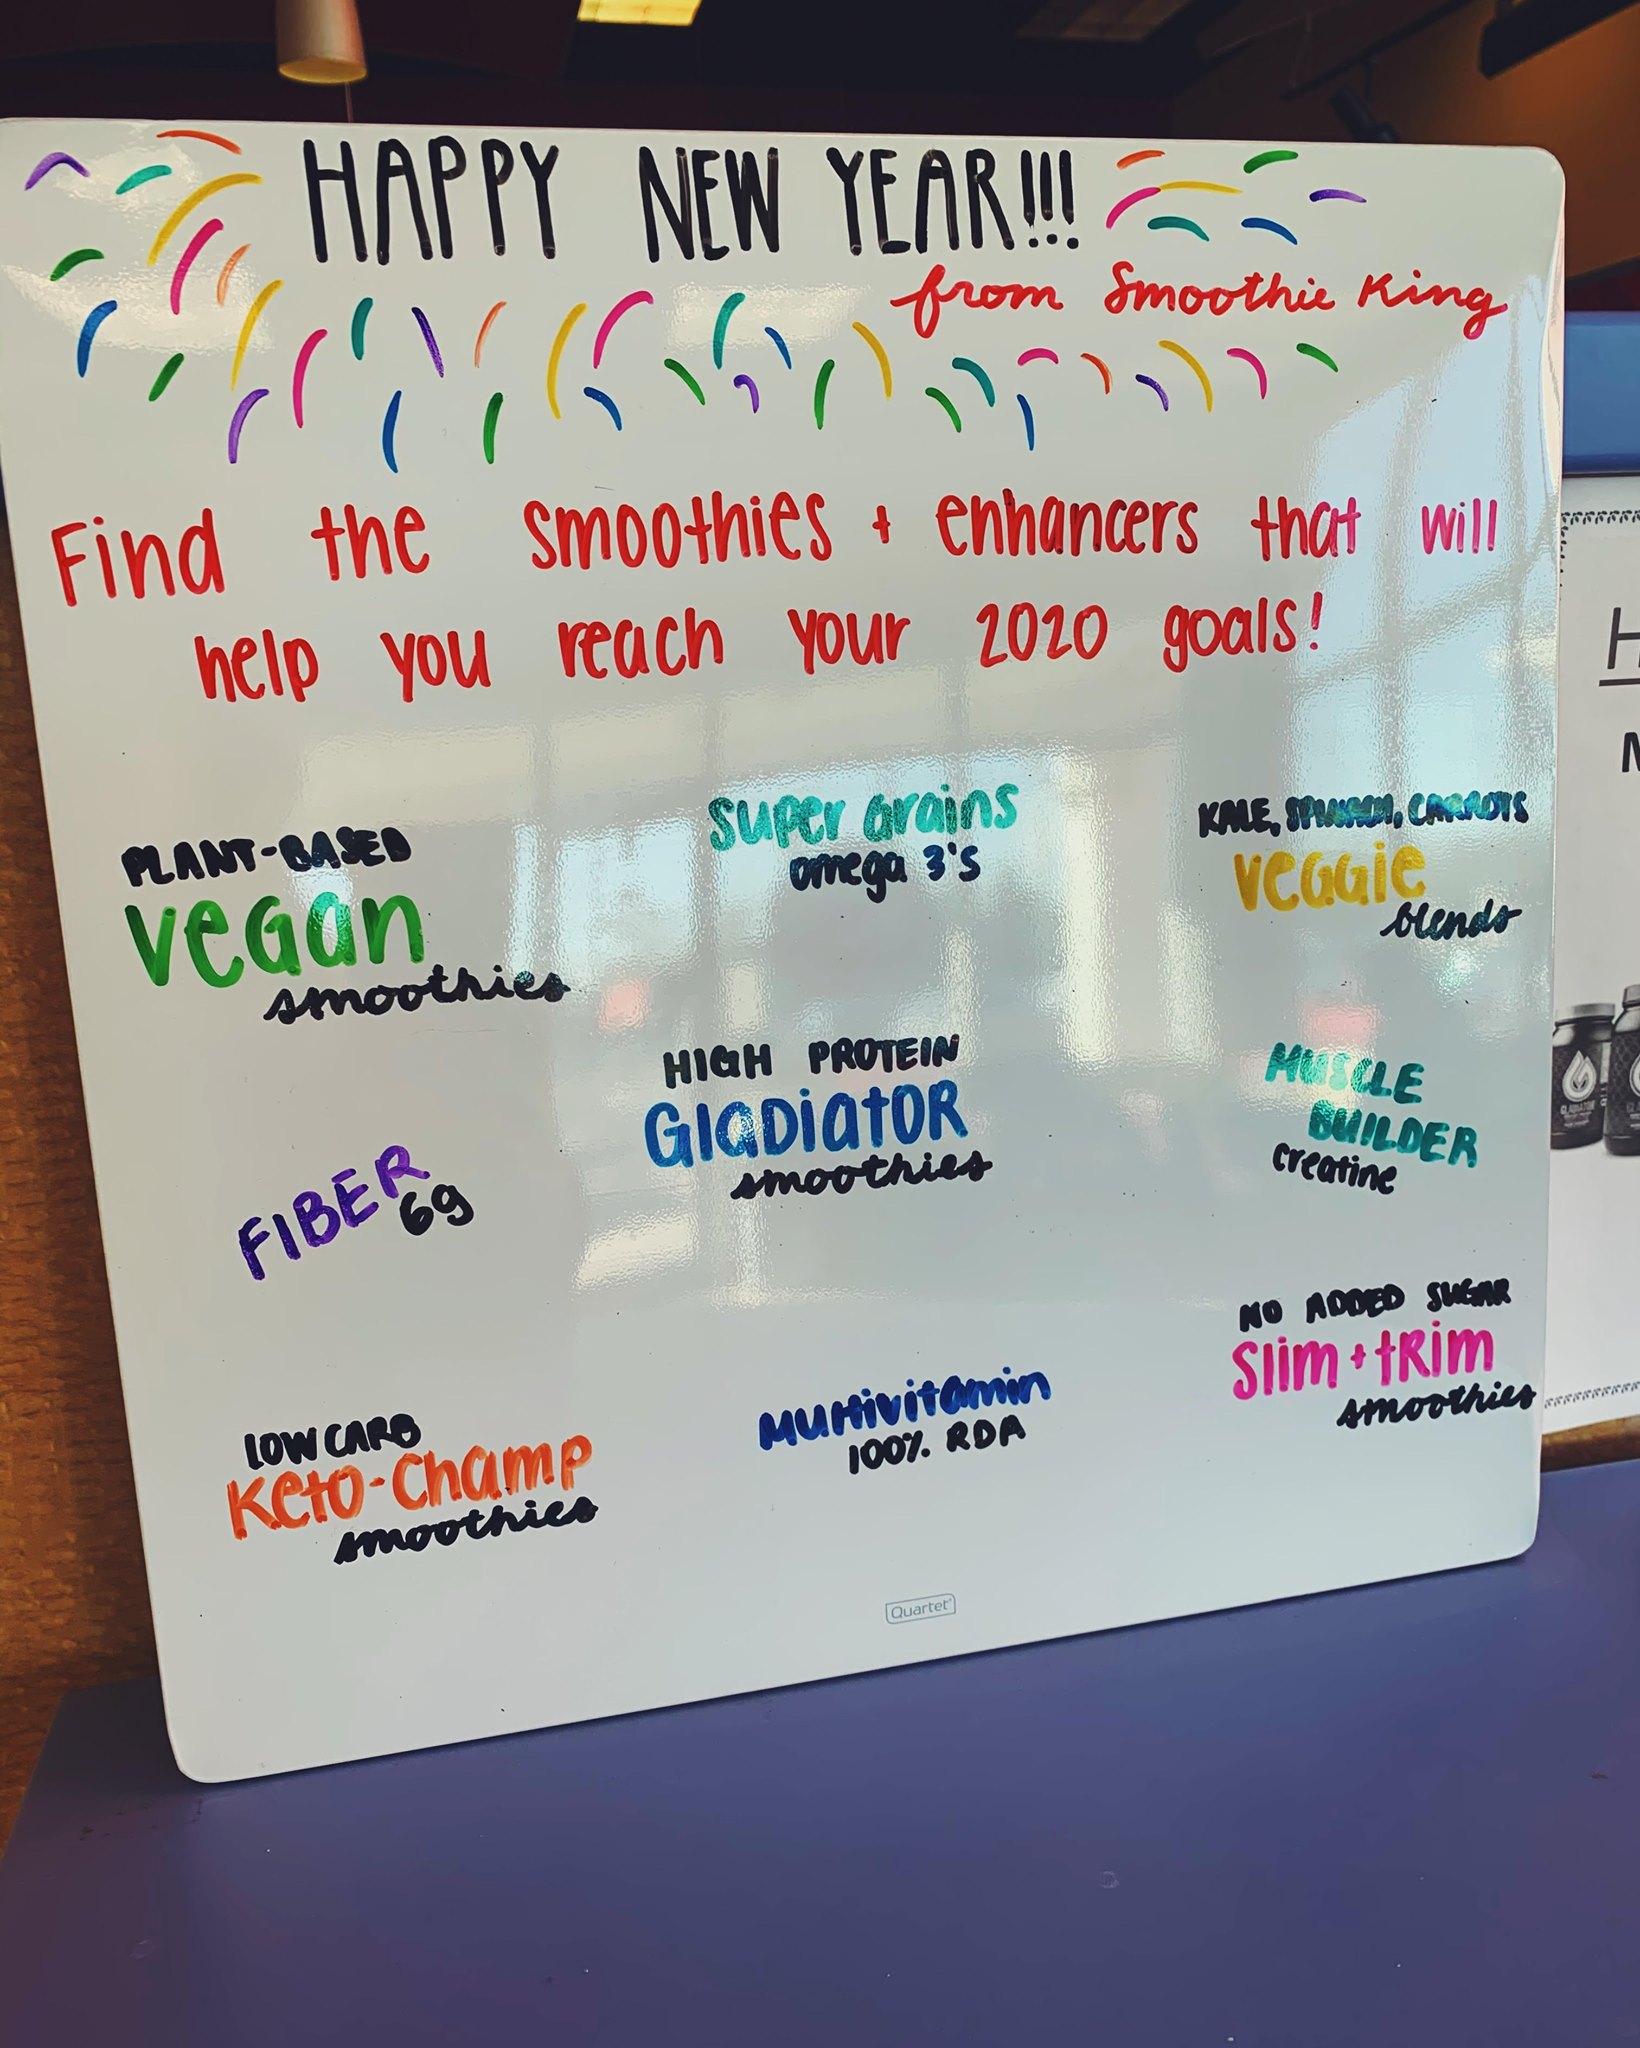 HAPPY NEW YEAR!!!
from Smoothie King
Find the smoothies + enhancers that will
help you reach your 2020 goals!
PLANT-BASED
vegan
smoothies
super grains
omega 3's
KALE, SPINACH, CARROTS
veggie
blends
FIBER
6g
HIGH PROTEIN
GlaDiatOR
smoothies
MUSCLE
BUILDER
creatine
LOW CARB
Keto-Champ
smoothies
Multivitamin
100% RDA
NO ADDED SUGAR
Slim + tRim
smoothies
Quartet
H
GLADIATOR